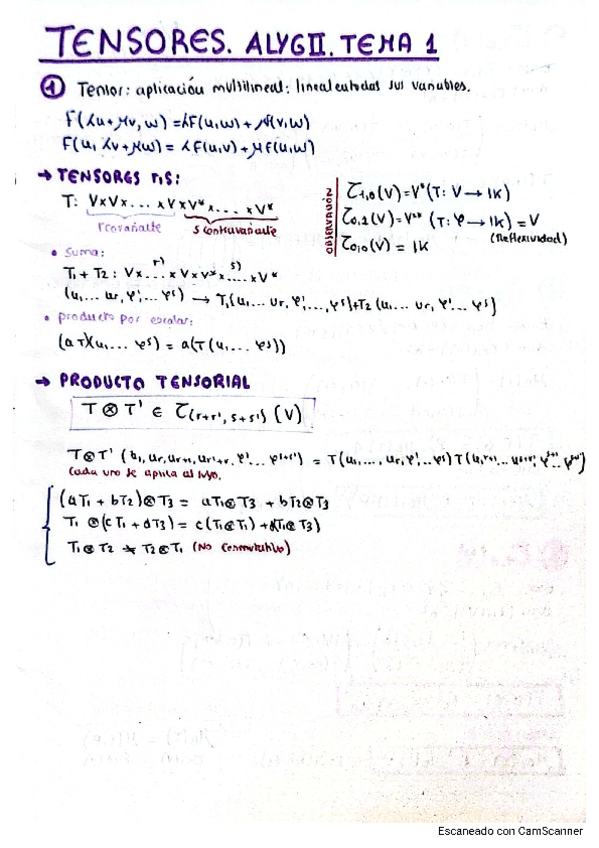 TENSORES. ALYGII. TEMA 1
① Tensor: aplicación multilineal: lineal en todas sus variables.
F(λu+μv,w) = λF(u,w) + μF(v,w)
F(u, λv+μw) = λF(u,v) + μF(u,w)
→ TENSORES r,s:
T: V×V×... ×V×V*×... ×V*
r covariante s contravariante
OBSERVACIONES
τ1,0(V)=V*(T: V→IK)
τ0,1(V)=V** (T: φ→IK) = V
(Reflexividad)
τ0,0(V) = IK
• Suma:
T1 + T2 : V×... r) ...×V×V*... s) ...×V*
(u1... ur, φ1... φs) → T1(u1... ur, φ1..., φs)+T2(u1... ur, φ1... φs)
• producto por escalar:
(aT)(u1... φs) = a(T(u1... φs))
→ PRODUCTO TENSORIAL
T ⊗ T' ∈ τ(r+r', s+s') (V)
T⊗T' (u1, ur, ur+1, ur'+r, φ1... φs+s') = T(u1,..., ur, φ1...φs) T(ur+1... ur+r', φs+1... φs+s')
Cada uno se aplica al suyo.
(aT1 + bT2)⊗T3 = aT1⊗T3 + bT2⊗T3
T1 ⊗(cT1 + dT3) = c(T1⊗T1) + dT1⊗T3)
T1⊗T2 ≠ T2⊗T1 (No conmutativo)
Escaneado con CamScanner